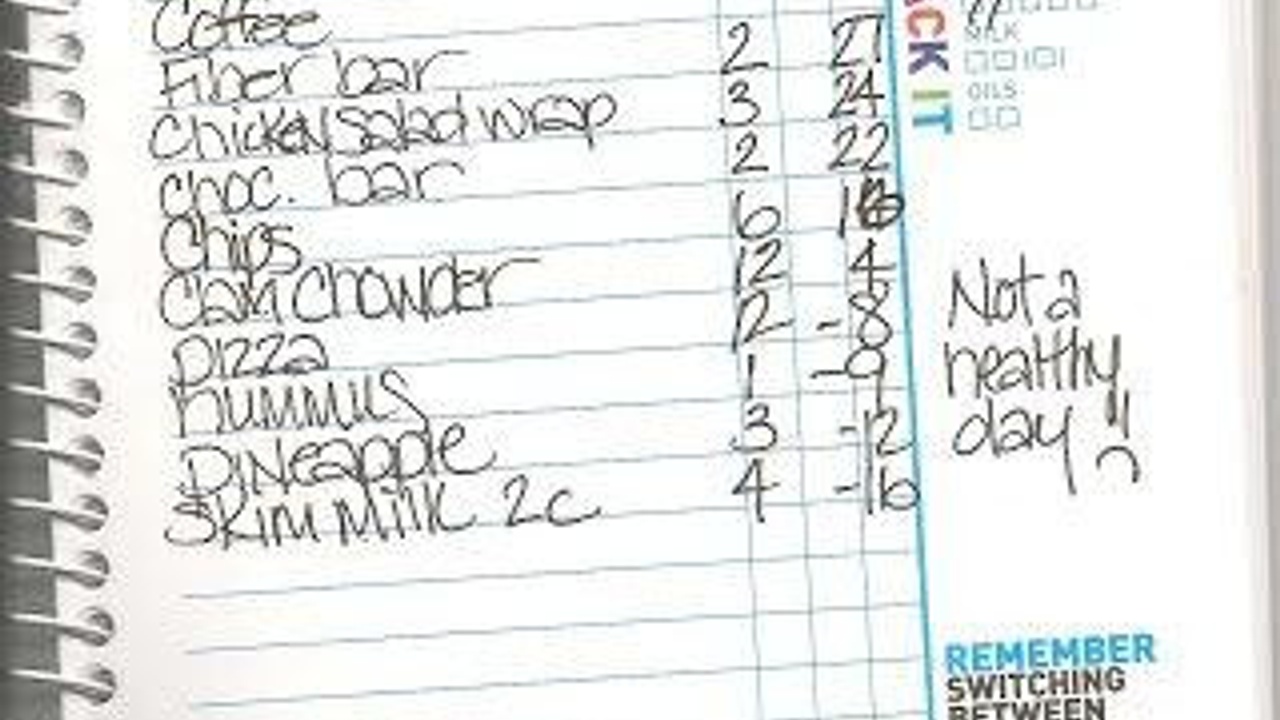 Coffee
Fiber bar 2 27
Chicken salad wrap 3 24
choc. bar 2 22
Chips 6 16
Clam Chowder 12 4
pizza 12 -8
hummus 1 -9
pineapple 3 -12
skim milk 2c 4 -16
ACK IT
MILK
OILS
Not a
healthy
day!!
REMEMBER
SWITCHING
BETWEEN